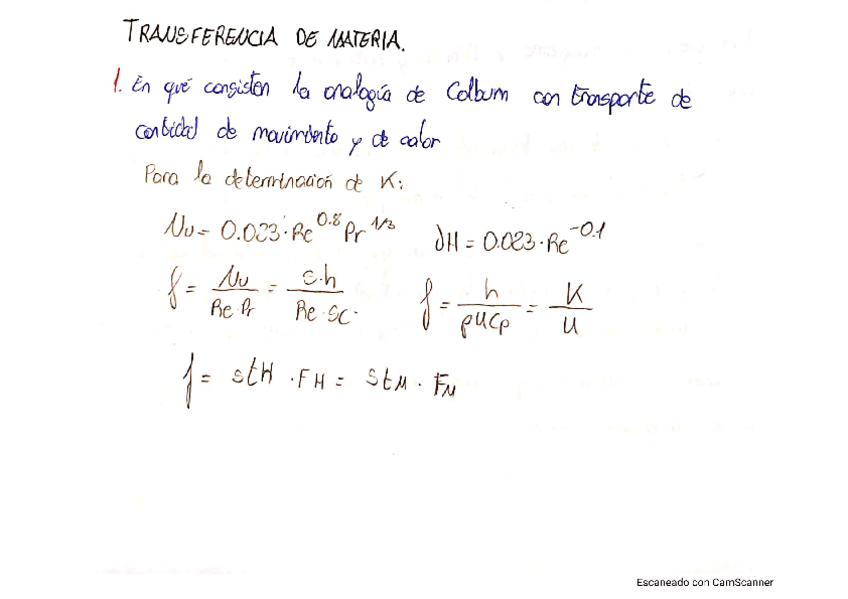 TRANSFERENCIA DE MATERIA.
1. En qué consisten la analogía de Colbum con transporte de
cantidad de movimiento y de calor
Para la determinación de K:
Nu = 0.023 · Re^0.8 Pr^1/3
JH = 0.023 · Re^-0.1
f = Nu / Re·Pr = S·h / Re·Sc·
f = h / ρUCp = K / U
f = StH · FH = StM · FM
Escaneado con CamScanner